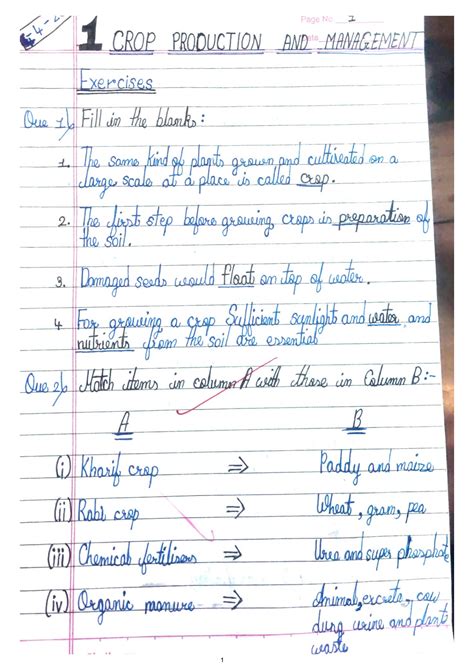 Page No. 1
Date
1 CROP PRODUCTION AND MANAGEMENT
Exercises
Que 1) Fill in the blanks:
1. The same kind of plants grown and cultivated on a
large scale at a place is called crop.
2. The first step before growing crops is preparation of
the soil.
3. Damaged seeds would float on top of water.
4 For growing a crop Sufficient sunlight and water and
nutrients from the soil are essential
Que 2) Match items in column A with those in Column B:-
A B
(i) Kharif crop ⇒ Paddy and maize
(ii) Rabi crop ⇒ Wheat, gram, pea
(iii) Chemical fertilisers ⇒ Urea and super phosphate
(iv) Organic manure ⇒ Animal, excreta, cow
dung urine and plants
waste
1